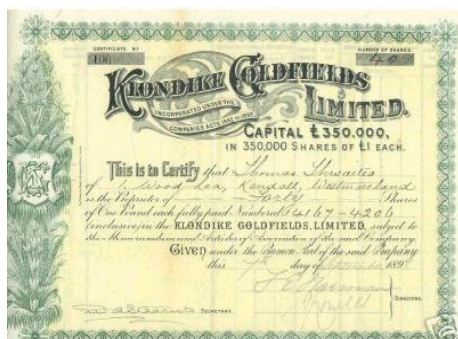 CERTIFICATE Nº NUMBER OF SHARES
106 40
KLONDIKE GOLDFIELDS
LIMITED.
INCORPORATED UNDER THE
COMPANIES ACTS 1862 TO 1893
CAPITAL £350,000,
IN 350,000 SHARES OF £1 EACH.
This is to Certify that Thomas Thwaites
of 1 Wood Lea, Kendall, Westmorland
is the Proprietor of Forty Shares
of One Pound each fully paid Numbered 54167-4206
inclusive in the KLONDIKE GOLDFIELDS, LIMITED, subject to
the Memorandum and Articles of Association of the said Company.
GIVEN under the Common Seal of the said Company
this day of 189
SECRETARY.
DIRECTORS.